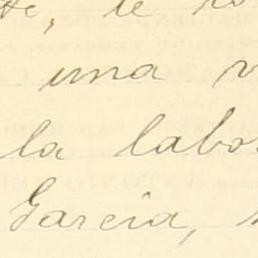 te, te
una v
la labo
Garcia,